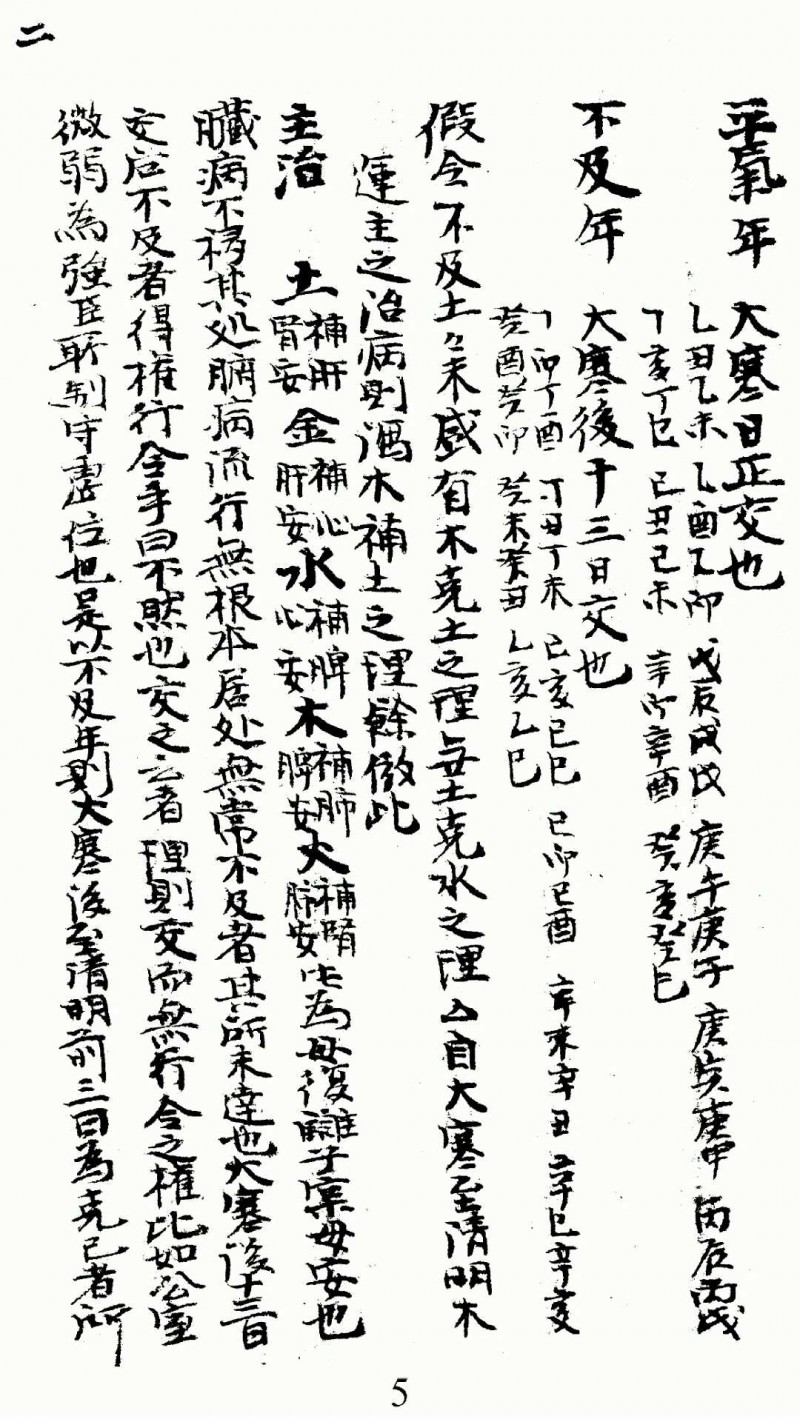 二
平氣年 大寒日正交也
乙丑乙未 乙酉乙卯 戊辰戊戌 庚午庚子 庚寅庚申 丙辰丙戌
丁亥丁巳 己丑己未 辛卯辛酉 癸亥癸巳
不及年 大寒後十三日交也
丁卯丁酉 丁丑丁未 己亥己巳 己卯己酉 辛未辛丑 辛巳辛亥
癸酉癸卯 癸未癸丑 乙亥乙巳
假令不及土々未盛有木克土之理無土克水之理 自大寒至清明木
運主之治病則瀉木補土之理餘倣此
主治 土 補肝腎安 金 補心肝安 水 補脾心安 木 補肺脾安 火 補腎肺安 此為母復讎子寧母安也
臟病不移其処腑病流行無根本居处無常不及者其所未達也大寒後十三日
交应不及者得權行令乎曰不然也交之云者理則交而無行令之權比如公室
微弱為強臣所制守虛位也是以不及年則大寒後至清明前三日為克己者所
5